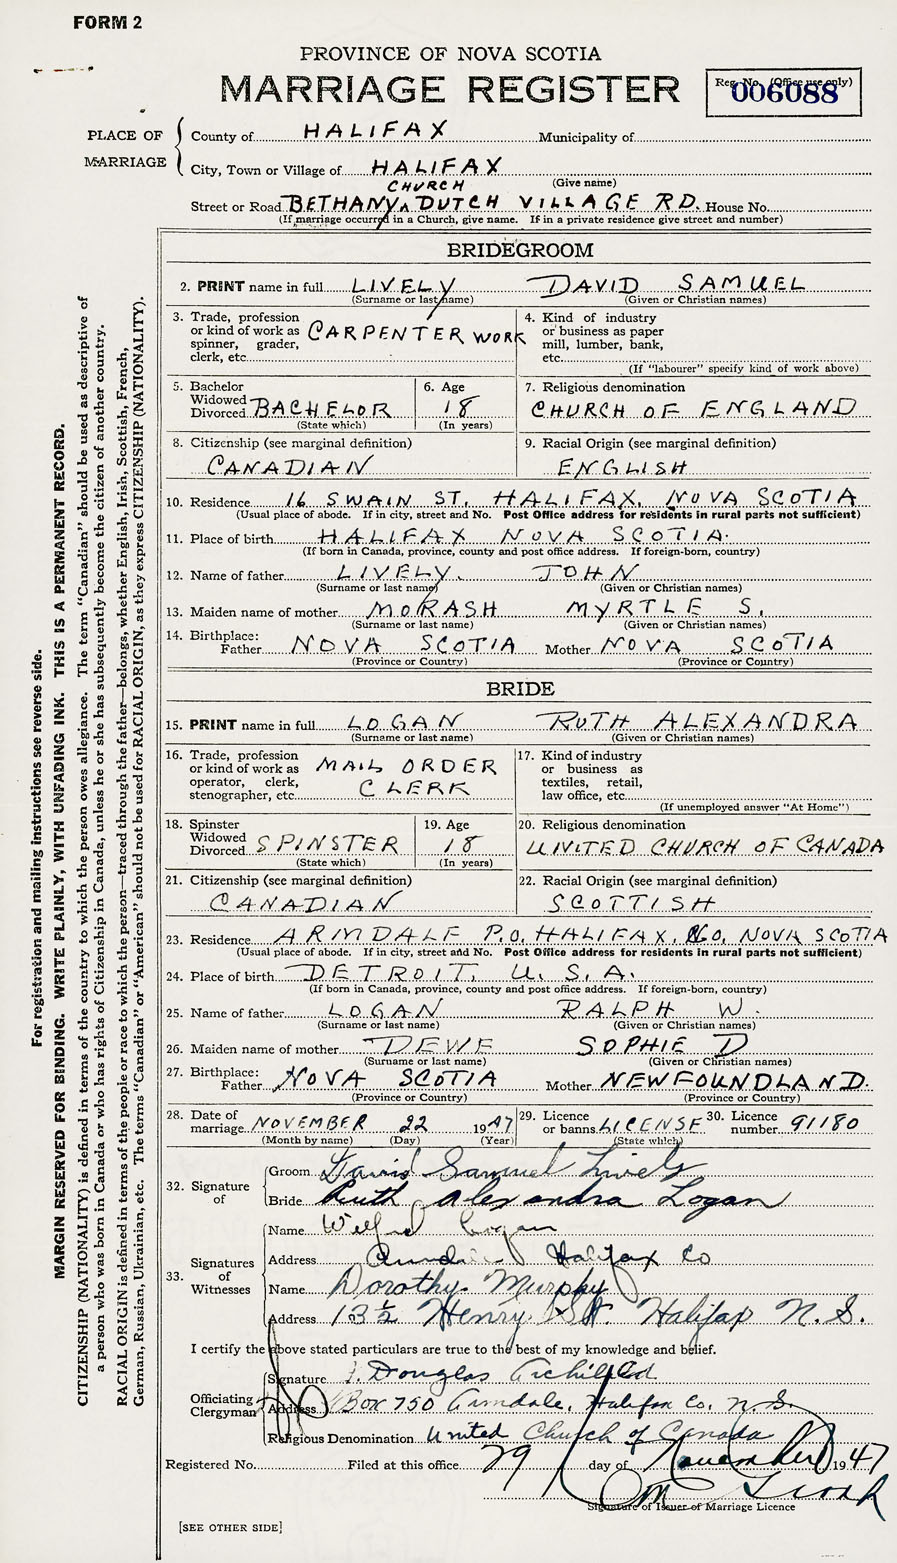 FORM 2
PROVINCE OF NOVA SCOTIA
MARRIAGE REGISTER
Reg. No. (Office use only)
006088
PLACE OF MARRIAGE
County of HALIFAX Municipality of
City, Town or Village of HALIFAX
(Give name)
CHURCH
Street or Road BETHANY, DUTCH VILLAGE RD. House No.
(If marriage occurred in a Church, give name. If in a private residence give street and number)
BRIDEGROOM
2. PRINT name in full LIVELY DAVID SAMUEL
(Surname or last name) (Given or Christian names)
3. Trade, profession or kind of work as spinner, grader, clerk, etc. CARPENTER WORK
4. Kind of industry or business as paper mill, lumber, bank, etc.
(If "labourer" specify kind of work above)
5. Bachelor Widowed Divorced BACHELOR
(State which)
6. Age 18
(In years)
7. Religious denomination
CHURCH OF ENGLAND
8. Citizenship (see marginal definition)
CANADIAN
9. Racial Origin (see marginal definition)
ENGLISH
10. Residence 16 SWAIN ST. HALIFAX, NOVA SCOTIA
(Usual place of abode. If in city, street and No. Post Office address for residents in rural parts not sufficient)
11. Place of birth HALIFAX NOVA SCOTIA.
(If born in Canada, province, county and post office address. If foreign-born, country)
12. Name of father LIVELY. JOHN
(Surname or last name) (Given or Christian names)
13. Maiden name of mother MORASH MYRTLE S.
(Surname or last name) (Given or Christian names)
14. Birthplace:
Father NOVA SCOTIA Mother NOVA SCOTIA
(Province or Country) (Province or Country)
BRIDE
15. PRINT name in full LOGAN RUTH ALEXANDRA
(Surname or last name) (Given or Christian names)
16. Trade, profession or kind of work as operator, clerk, stenographer, etc. MAIL ORDER CLERK
17. Kind of industry or business as textiles, retail, law office, etc.
(If unemployed answer "At Home")
18. Spinster Widowed Divorced SPINSTER
(State which)
19. Age 18
(In years)
20. Religious denomination
UNITED CHURCH OF CANADA
21. Citizenship (see marginal definition)
CANADIAN
22. Racial Origin (see marginal definition)
SCOTTISH
23. Residence ARMDALE P.O. HALIFAX, CO, NOVA SCOTIA
(Usual place of abode. If in city, street and No. Post Office address for residents in rural parts not sufficient)
24. Place of birth DETROIT, U.S.A.
(If born in Canada, province, county and post office address. If foreign-born, country)
25. Name of father LOGAN RALPH W.
(Surname or last name) (Given or Christian names)
26. Maiden name of mother DEWE SOPHIE D
(Surname or last name) (Given or Christian names)
27. Birthplace:
Father NOVA SCOTIA Mother NEWFOUNDLAND.
(Province or Country) (Province or Country)
28. Date of marriage NOVEMBER 22 1947
(Month by name) (Day) (Year)
29. Licence or banns LICENSE
(State which)
30. Licence number 91180
32. Signature of
Groom David Samuel Lively
Bride Ruth Alexandra Logan
33. Signatures of Witnesses
Name Wilfred Logan
Address Halifax Co
Name Dorothy Murphy
Address 13½ Henry St. Halifax N.S.
I certify the above stated particulars are true to the best of my knowledge and belief.
Officiating Clergyman
Signature Douglas Archibald
Address Box 750 Armdale, Halifax Co. N.S.
Religious Denomination United Church of Canada
Registered No. Filed at this office 29 day of November 1947
Signature of Issuer of Marriage Licence
[SEE OTHER SIDE]
For registration and mailing instructions see reverse side.
MARGIN RESERVED FOR BINDING. WRITE PLAINLY, WITH UNFADING INK. THIS IS A PERMANENT RECORD.
CITIZENSHIP (NATIONALITY) is defined in terms of the country to which the person owes allegiance. The term "Canadian" should be used as descriptive of
a person who was born in Canada or who has rights of Citizenship in Canada, unless he or she has subsequently become the citizen of another country.
RACIAL ORIGIN is defined in terms of the people or race to which the person—traced through the father—belongs, whether English, Irish, Scottish, French,
German, Russian, Ukrainian, etc. The terms "Canadian" or "American" should not be used for RACIAL ORIGIN, as they express CITIZENSHIP (NATIONALITY).